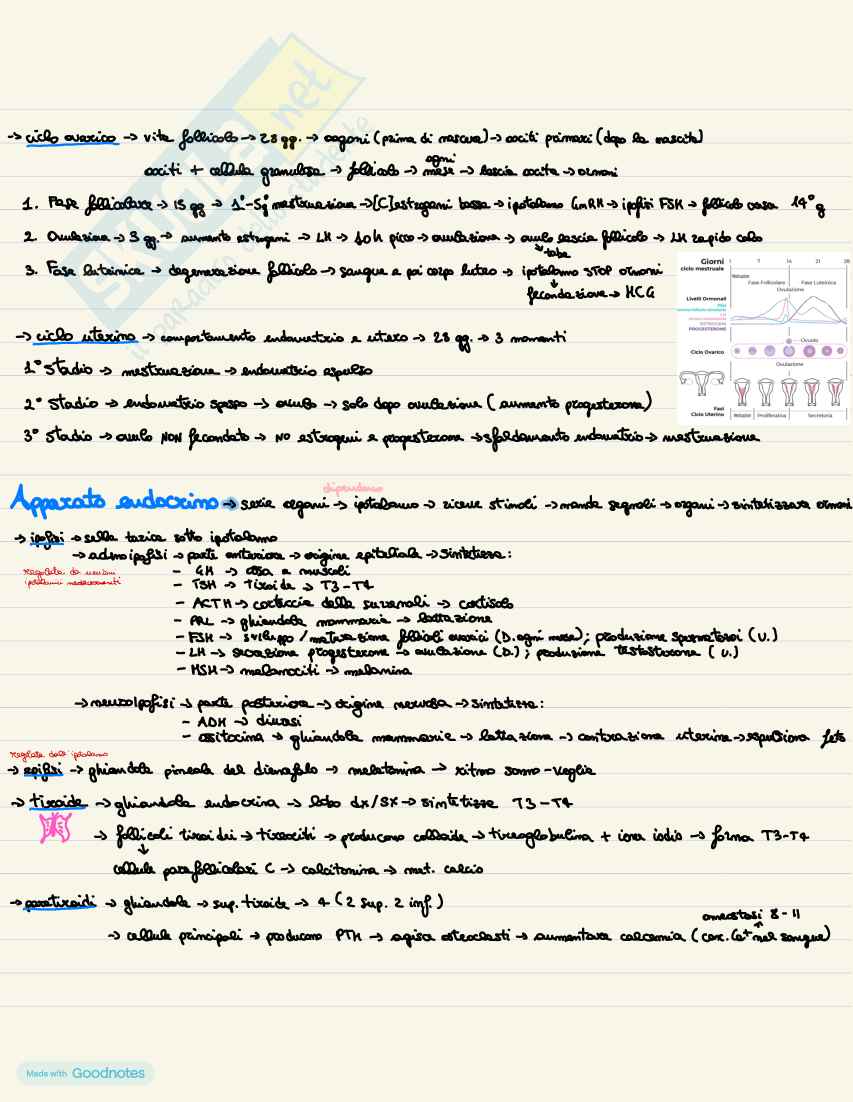 → ciclo ovarico → vita follicolo → 28 gg. → oogoni (prima di nascere) → ociti primari (dopo la nascita)
ociti + cellula granulosa → follicolo → ogni mese → lascia ocita → ormoni
1. Fase follicolare → 15 gg → 1°-5g mestruazione → [C] estrogeni bassa → ipotalamo GnRH → ipofisi FSH → follicolo ovaia 14° g
2. Ovulazione → 3 gg. → aumento estrogeni → LH → 40h picco → ovulazione → ovulo lascia follicolo → LH rapido calo
↘ tube
3. Fase luteinica → degenerazione follicolo → sangue e poi corpo luteo → ipotalamo STOP ormoni
↓
fecondazione → HCG
Giorni
ciclo mestruale
1 7 14 21 28
Fase Follicolare
Fase Luteinica
Ovulazione
Livelli Ormonali
PROGESTERONE
Ciclo Ovarico
Ovulo
Ovulazione
Fasi
Ciclo Uterino
Proliferativa
Secretoria
→ ciclo uterino → comportamento endometrio e utero → 28 gg. → 3 momenti
1° Stadio → mestruazione → endometrio espulso
2° Stadio → endometrio spesso → ovulo → solo dopo ovulazione (aumento progesterone)
3° Stadio → ovulo NON fecondato → NO estrogeni e progesterone → sfaldamento endometrio → mestruazione
dipendono
Apparato endocrino → serie organi → ipotalamo → riceve stimoli → manda segnali → organi → sintetizzare ormoni
→ ipofisi → sella turcica sotto ipotalamo
→ adenoipofisi → parte anteriore → origine epiteliale → sintetizza:
regolata da neuroni
ipotalamici
- GH → ossa e muscoli
- TSH → tiroide → T3-T4
- ACTH → corteccia delle surrenali → cortisolo
- PRL → ghiandola mammaria → lattazione
- FSH → sviluppo/maturazione follicoli ovarici (D. ogni mese); produzione spermatozoi (U.)
- LH → secrezione progesterone → ovulazione (D.); produzione testosterone (U.)
- MSH → melanociti → melanina
→ neuroipofisi → parte posteriore → origine nervosa → sintetizza:
- ADH → diuresi
- ossitocina → ghiandola mammaria → lattazione → contrazione uterina → espulsione feto
regolata dall'ipotalamo
→ epifisi → ghiandola pineale del diencefalo → melatonina → ritmo sonno-veglia
→ tiroide → ghiandola endocrina → lobo dx/sx → sintetizza T3-T4
→ follicoli tiroidei → tireociti → producono colloide → tireoglobulina + ione iodio → forma T3-T4
↓
cellule parafollicolari C → calcitonina → met. calcio
→ paratiroidi → ghiandola → sup. tiroide → 4 (2 sup. 2 inf.)
omeostasi 8-11
→ cellule principali → producono PTH → agisce osteoclasti → aumentare calcemia (con. Ca+ nel sangue)
Made with Goodnotes
SKUOLA.net
il paradiso dello studente